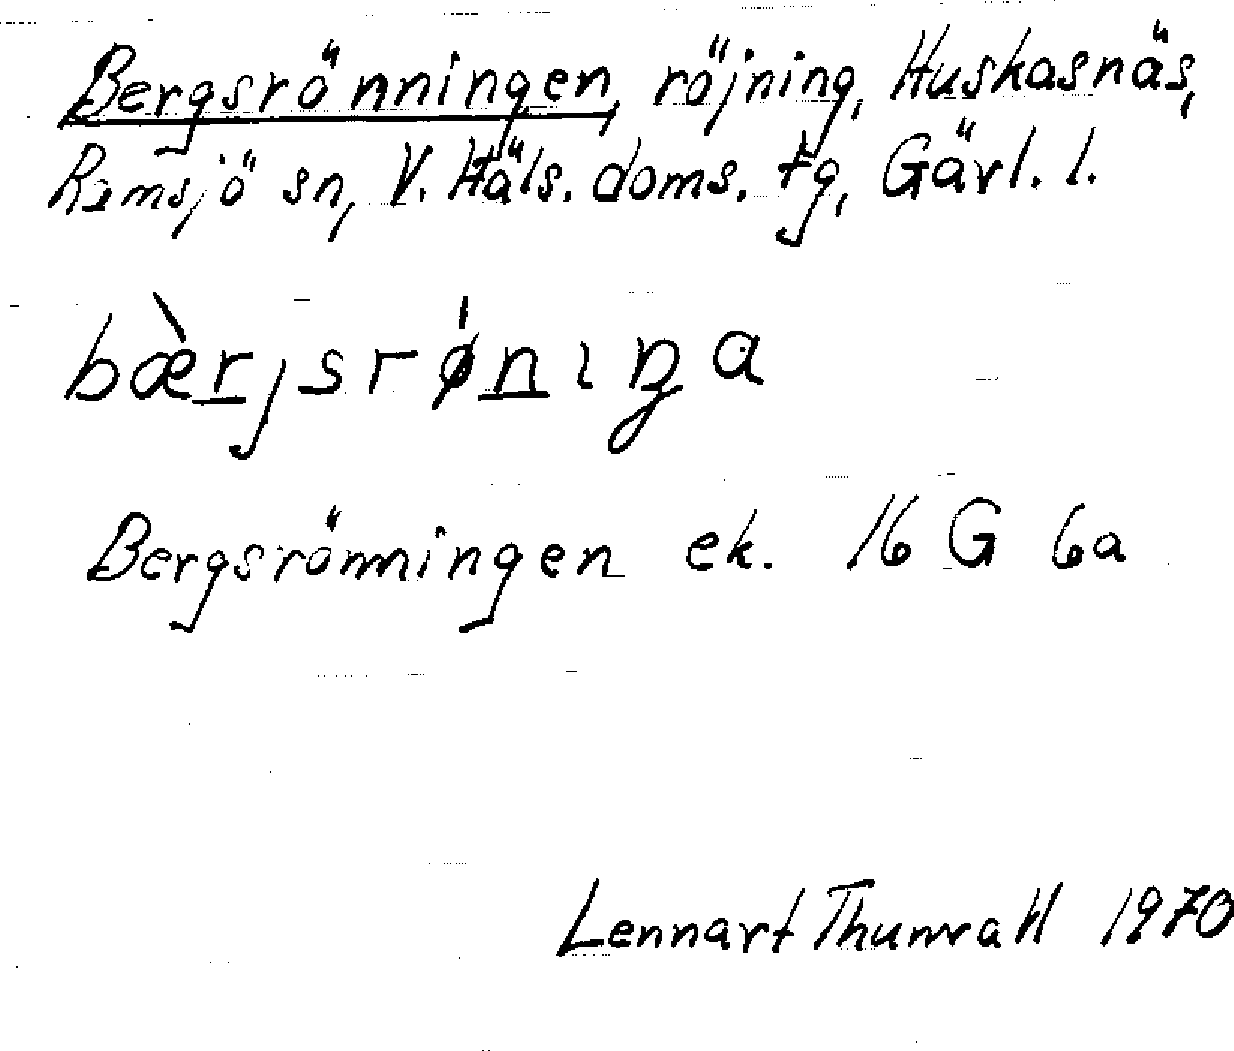 Bergsrönningen, röjning, Huskasnäs,
Ramsjö sn, V. Häls. doms. tg, Gävl. l.
bæ̀rjsrǿnıŋa
Bergsrönningen ek. 16 G 6a
Lennart 1970